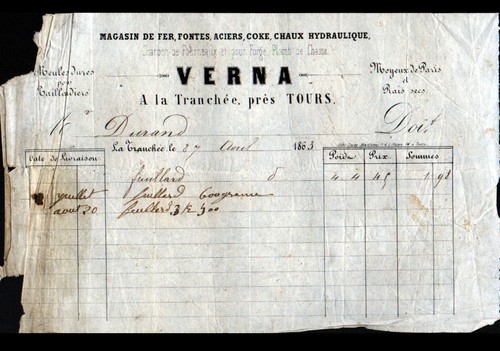 MAGASIN DE FER, FONTES, ACIERS, COKE, CHAUX HYDRAULIQUE,
Charbon de Fourneaux et pour Forge, Plomb de Chasse.
Meules dures
pour
Taillandiers
VERNA
Moyeux de Paris
et
Rais secs.
A la Tranchée, près TOURS.
M Durand Doit
La Tranchée le 27 Avril 1863
Date de Livraison Poids Prix Sommes
feuillard 8 4 4 45 1 98
juillet feuillard
aout 20 feuillard 3 K 500